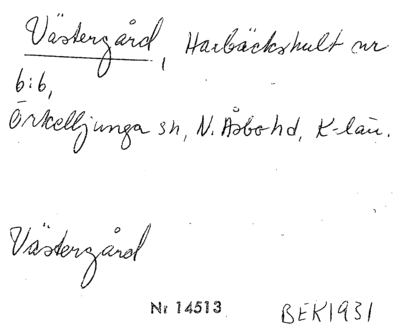 Västergård, Harbäckshult nr
6:6,
Örkelljunga sn, N. Åsbo hd, K-län.
Västergård
Nr 14513 BEK1931